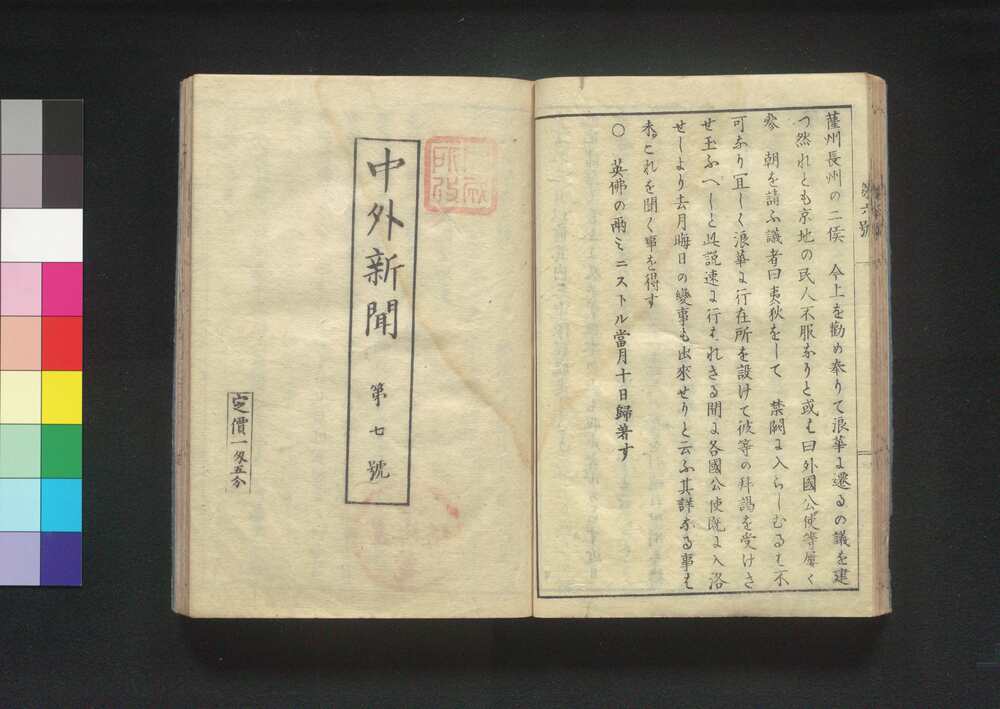 薩州長州の二侯　今上を勸め奉りて浪華に遷るの議を建
つ然れとも京地の民人不服なりと或は曰外國公使等屡く
參　朝を請ふ議者曰夷狄をして　禁闕に入らしむるは不
可なり宜しく浪華に行在所を設けて彼等の拜謁を受けさ
せ玉ふへしと此説速に行はれさる間に各國公使既に入洛
せしより去月晦日の變事も出來せりと云ふ其詳なる事は
未これを聞く事を得す
○　英佛の兩ミニストル當月十日歸著す
第六號
中外新聞　第七號
定價一匁五分